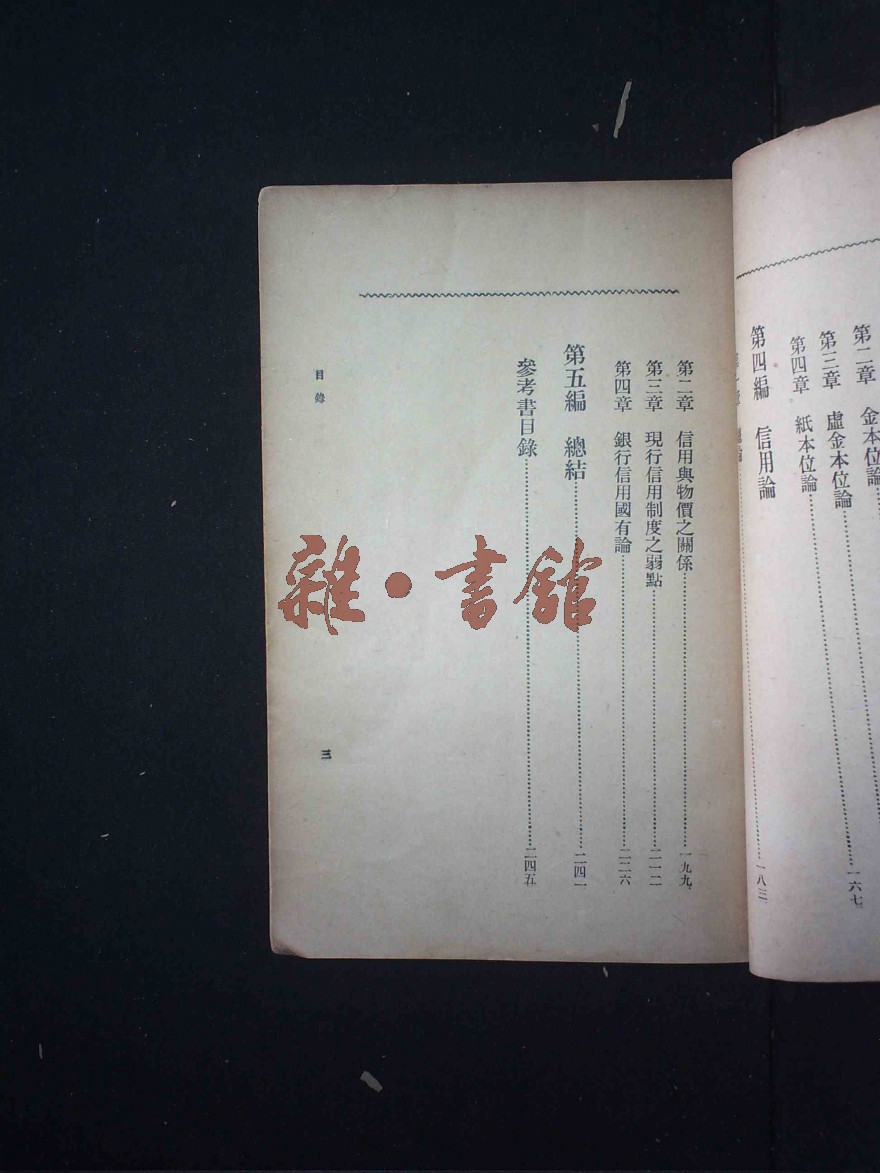 第二章　金本位論
第三章　虛金本位論……一六七
第四章　紙本位論
第四編　信用論……一八三
第二章　信用與物價之關係……一九九
第三章　現行信用制度之弱點……二一二
第四章　銀行信用國有論……二二六
第五編　總結……二四一
參考書目錄……二四五
目錄
三
雜·書館